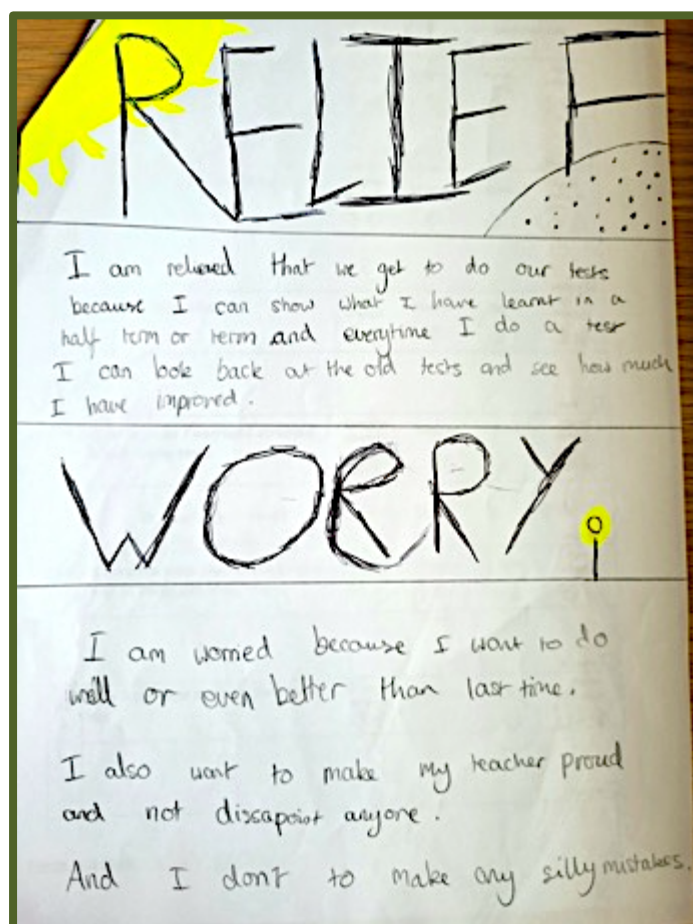 RELIEF
I am relieved that we get to do our tests
because I can show what I have learnt in a
half term or term and everytime I do a test
I can look back at the old tests and see how much
I have improved.
WORRY
I am worried because I want to do
well or even better than last time.
I also want to make my teacher proud
and not dissapoint anyone.
And I don't to make any silly mistakes.